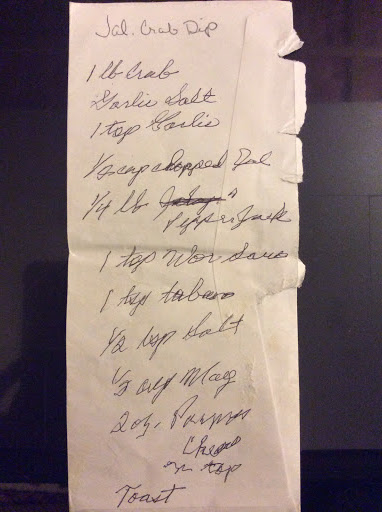 Jal. Crab Dip
1 lb Crab
Garlic Salt
1 tsp Garlic
1/2 cup chopped Jal
1/4 lb
Pepper Jack
1 tsp Wor Sauc
1 tsp tabasco
1/2 tsp Salt
cup May
2 oz. Parm
Chees
on top
Toast